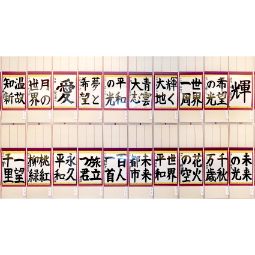 輝
希望
の光
世界
一周
輝く
大地
青雲
大志
平和
の光
夢と
希望
愛
月の
世界
温故
知新
未来
の光
千秋
万歳
花火
の空
世界
平和
未来
都市
百人
一首
旅立
つ君
永久
平和
桃紅
柳緑
一望
千里